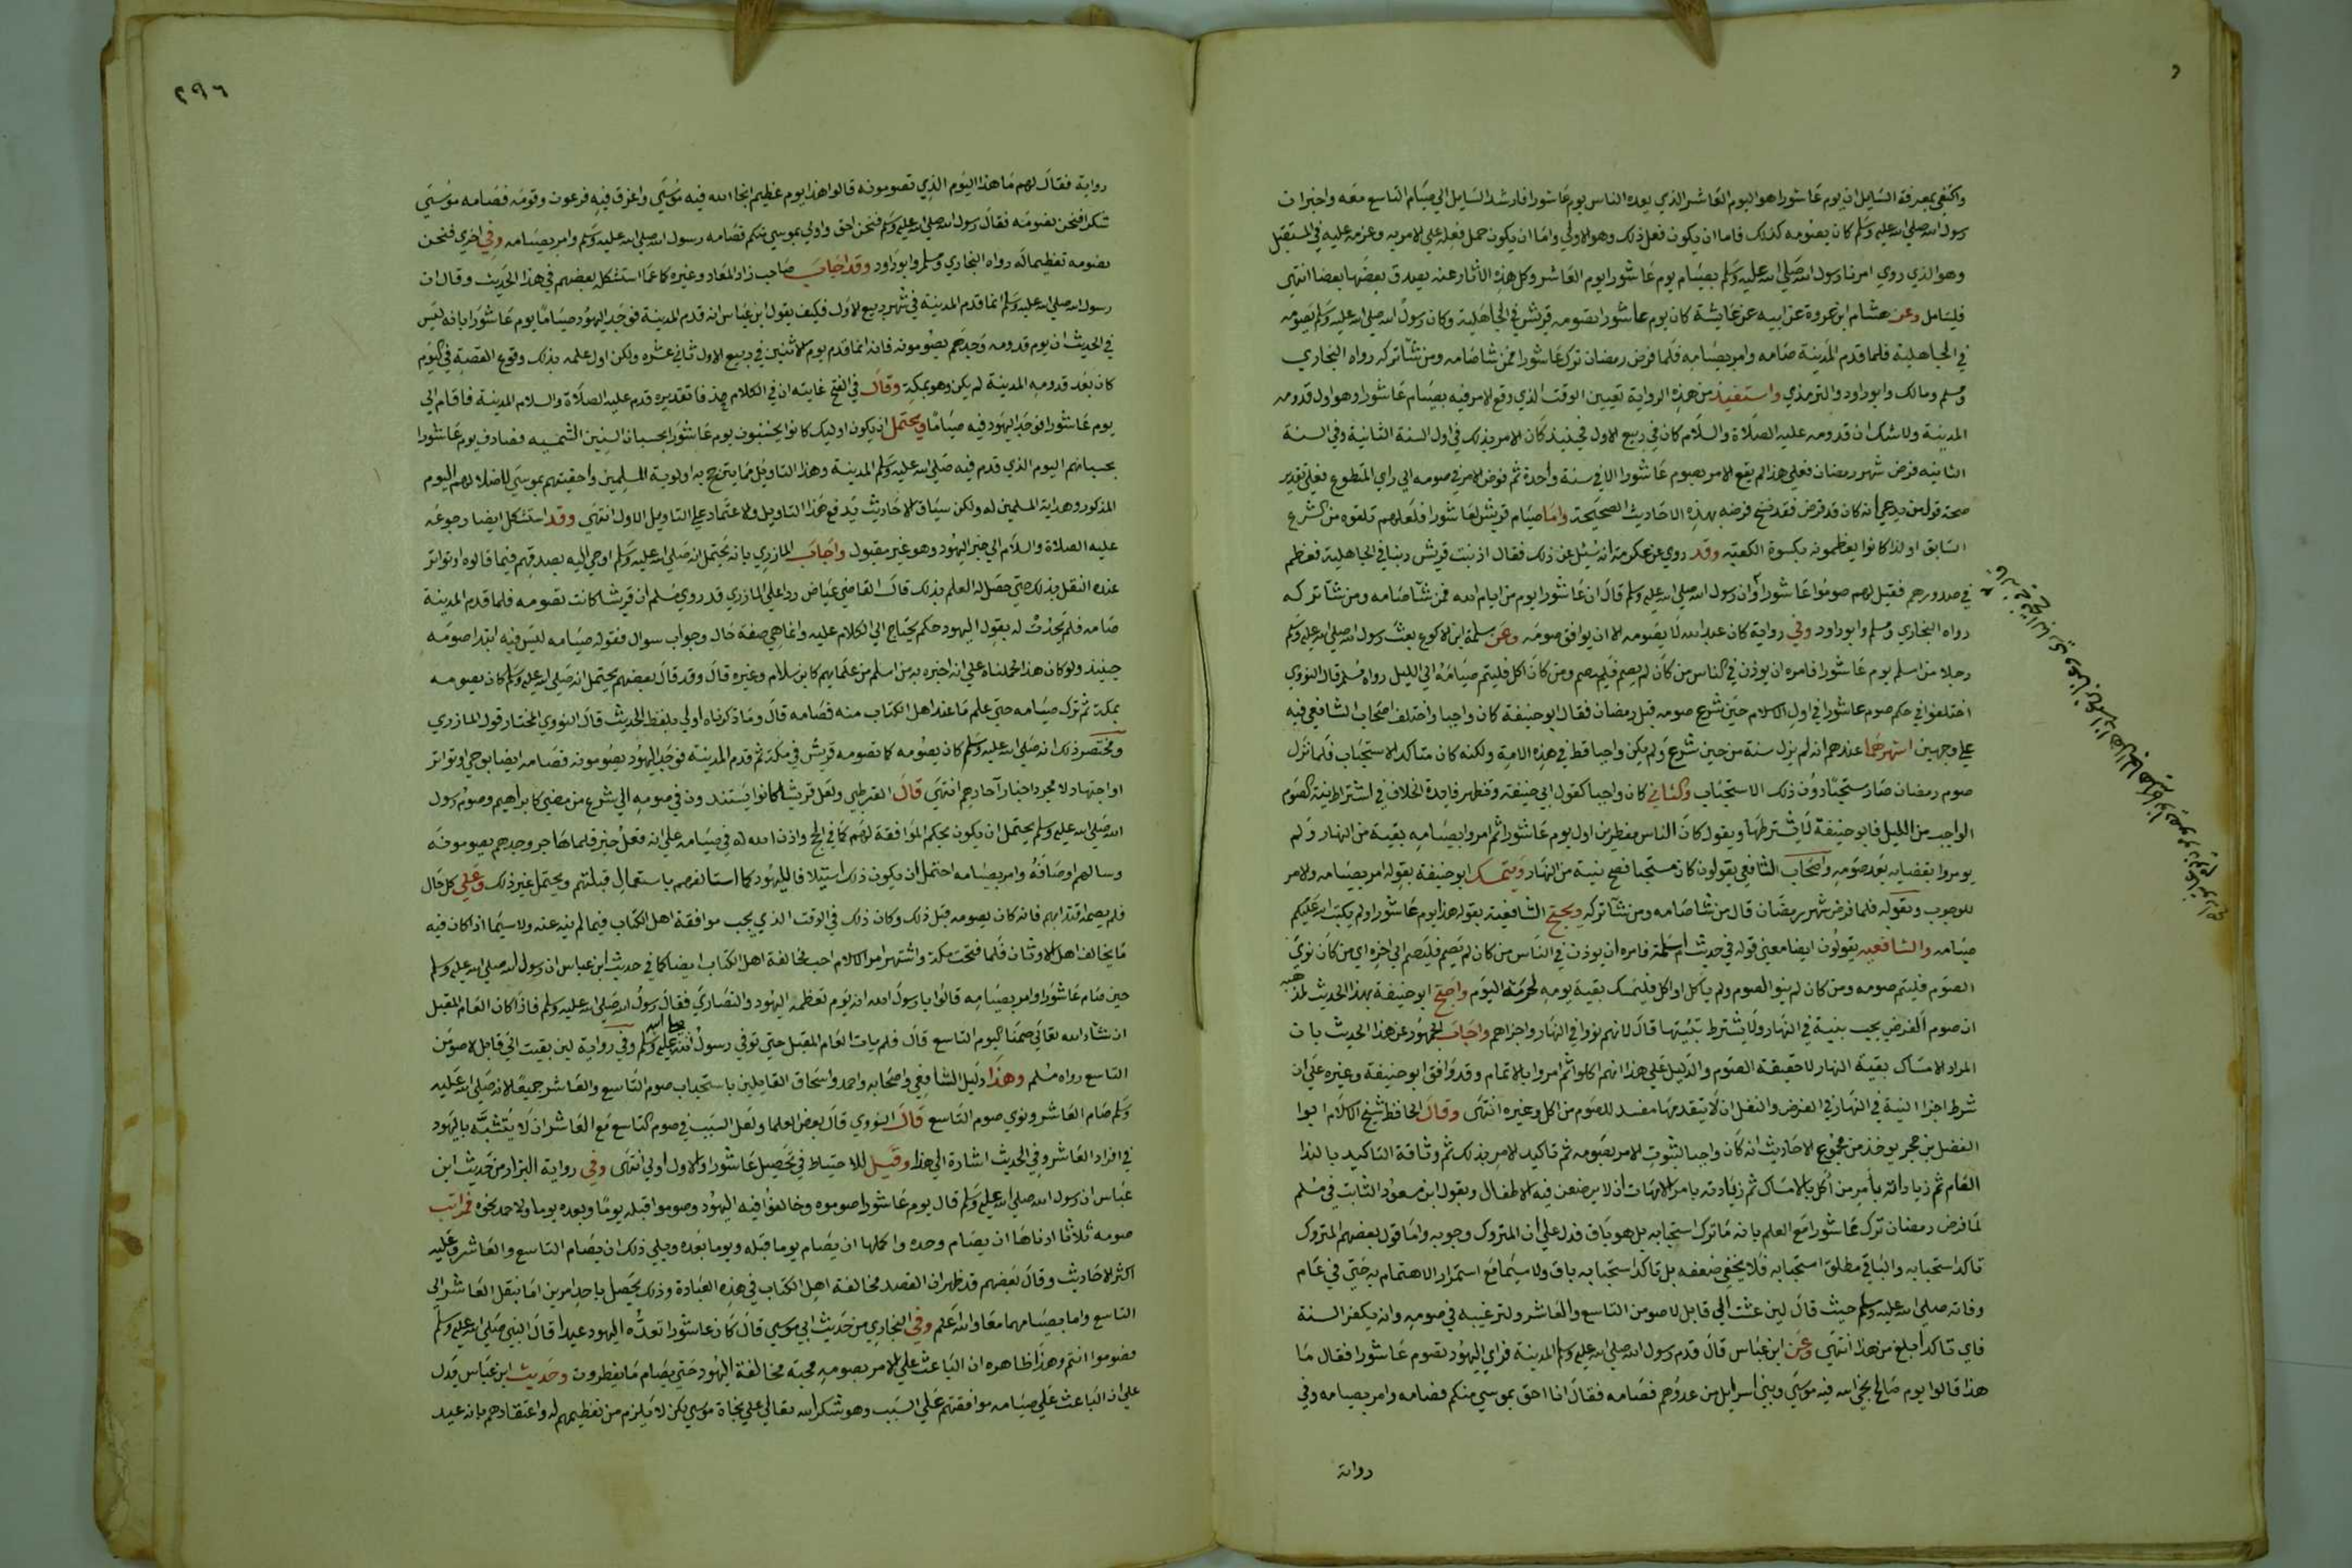 واكتفى بمعرفة السايل ان يوم عاشورا هو اليوم العاشر الذي يعده الناس يوم عاشورا فارشد السايل الي صيام التاسع معه واخبر ان
رسول الله صلي الله عليه وسلم كان يصومه كذلك فاما ان يكون فعل ذلك وهو الاولي واما ان يكون حمل فعله علي الامر به وعزمه عليه في المستقبل
وهو الذي روي امرنا رسول الله صلي الله عليه وسلم بصيام يوم عاشورا يوم العاشر وكل هذه الآثار عنه يصدق بعضها بعضا انتهى
فليتامل وعن هشام ابن عروة عن ابيه عن عايشة كان يوم عاشورا تصومه قريش في الجاهلية وكان رسول الله صلي الله عليه وسلم يصومه
في الجاهلية فلما قدم المدينة صامه وامر بصيامه فلما فرض رمضان ترك عاشورا فمن شا صامه ومن شآ تركه رواه البخاري
ومسلم ومالك وابو داود والترمذي واستفيد من هذه الرواية تعيين الوقت الذي وقع الامر فيه بصيام عاشورا وهو اول قدومه
المدينة ولا شك ان قدومه عليه الصلاة والسلام كان في ربيع الاول فحينيذ كان الامر بذلك في اول السنة الثانية وفي السنة
الثانية فرض شهر رمضان فعلي هذا لم يقع الامر بصوم عاشورا الا في سنة واحدة ثم فوض الامر في صومه الي راي المتطوع فعلي تقدير
صحة قول من يدعي انه كان قد فرض فقد نسخ فرضه بهذه الاحاديث الصحيحة واما صيام قريش لعاشورا فلعلهم تلقوه من الشرع
السابق او لذا كانوا يعظمونه بكسوة الكعبة وقد روي عن عكرمة انه سيل عن ذلك فقال اذنبت قريش ذنبا في الجاهلية فعظم
في صدورهم فقيل لهم صوموا عاشورا وان رسول الله صلي الله عليه وسلم قال ان عاشورا يوم من ايام الله فمن شآ صامه ومن شآ تركه
رواه البخاري ومسلم وابو داود وفي رواية كان عبد الله لا يصومه الا ان يوافق صومه وعن سلمة ابن الاكوع بعث رسول الله صلي الله عليه وسلم
رجلا من اسلم يوم عاشورا فامره ان يوذن في الناس من كان لم يصم فليصم ومن كان اكل فليتم صيامه الي الليل رواه مسلم قال النووي
اختلفوا في حكم صوم عاشورا في اول الاسلام حين شرع صومه قبل رمضان فقال ابو حنيفة كان واجبا واختلف اصحاب الشافعي فيه
علي وجهين اشهرهما عندهم انه لم يزل سنة من حين شرع ولم يكن واجبا قط في هذه الامة ولكنه كان متاكد الاستحباب فلما نزل
صوم رمضان صار مستحبا دون ذلك الاستحباب والثاني كان واجبا كقول ابي حنيفة وتظهر فايدة الخلاف في اشتراط نية الصوم
الواجب من الليل فابو حنيفة لا يشترطها ويقول كان الناس مفطرين اول يوم عاشورا ثم امروا بصيامه بقية من النهار ولم
يومروا بقضايه بعد صومه واصحاب الشافعي يقولون كان مستحبا فصح بنية من النهار ويتمسك ابو حنيفة بقوله امر بصيامه والامر
للوجوب وبقوله فلما فرض شهر رمضان قال من شا صامه ومن شآ تركه ويحتج الشافعية بقوله هذا يوم عاشورا ولم يكتب الله عليكم
صيامه والشافعية يقولون ايضا معنى قوله في حديث اسلمة فامره ان يوذن في الناس من كان لم يصم فليصم الي اخره اي من كان نوى
الصوم فليتم صومه ومن كان لم ينو الصوم ولم ياكل او اكل فليمسك بقية يومه لحرمة اليوم واحتج ابو حنيفة بهذا الحديث لمذهبه
ان صوم الفرض يجب بنية في النهار ولا يشترط تبييتها قال لانهم نووا في النهار واجزاهم واجاب الجمهور عن هذا الحديث بان
المراد الامساك بقية النهار لا حقيقة الصوم والدليل علي هذا انهم اكلوا ثم امروا بالاتمام وقد وافق ابو حنيفة وغيره علي ان
شرط اجزا النية في النهار في الفرض والنفل ان لا يتقدمها مفسد للصوم من اكل وغيره انتهى وقال الحافظ شيخ الاسلام ابوا
الفضل بن حجر يوخذ من مجموع الاحاديث انه كان واجبا لثبوت الامر بصومه ثم تاكيد الامر بذلك ثم وثاقة التاكيد بالندا
العام ثم زيادته بامر من اكل بالامساك ثم زيادته بامر الامهات ان لا يرضعن فيه الاطفال وبقول ابن مسعود الثابت في مسلم
لما فرض رمضان ترك عاشورا مع العلم بانه ما ترك استحبابه بل هو باق فدل علي ان المتروك وجوبه واما قول بعضهم المتروك
تاكد استحبابه والباقي مطلق استحبابه فلا يخفي ضعفه بل تاكد استحبابه باق ولا سيما مع استمرار الاهتمام به حتي في عام
وفاته صلي الله عليه وسلم حيث قال لين عشت الي قابل لاصومن التاسع والعاشر ولترغيبه في صومه وانه يكفر السنة
فاي تاكد ابلغ من هذا انتهي وعن ابن عباس قال قدم رسول الله صلي الله عليه وسلم المدينة فراي اليهود تصوم عاشورا فقال ما
هذا قالوا يوم صالح نجي الله فيه موسي وبني اسرايل من عدوهم فصامه فقال انا احق بموسي منكم فصامه وامر بصيامه وفي
رواية
٢٩٦
رواية فقال لهم ما هذا اليوم الذي تصومونه قالوا هذا يوم عظيم انجا الله فيه موسي واغرق فيه فرعون وقومه فصامه موسي
شكرا فنحن نصومه فقال رسول الله صلي الله عليه وسلم فنحن احق واولي بموسي منكم فصامه رسول الله صلي الله عليه وسلم وامر بصيامه وفي اخري فنحن
نصومه تعظيما له رواه البخاري ومسلم وابو داود وقد اجاب صاحب زاد المعاد وغيره كا عما استشكله بعضهم في هذا الحديث وقال ان
رسول الله صلي الله عليه وسلم انما قدم المدينة في شهر ربيع الاول فكيف يقول ابن عباس انه قدم المدينة فوجد اليهود صياما يوم عاشورا بانه ليس
في الحديث ان يوم قدومه وجدهم يصومونه فانه انما قدم يوم الاثنين في ربيع الاول ثاني عشره ولكن اول علمه بذلك ووقوع القصة في اليوم
كان بعد قدومه المدينة لم يكن وهو بمكة وقال في الفتح غايته ان في الكلام حذفا تقديره قدم عليه الصلاة والسلام المدينة فاقام الي
يوم عاشورا فوجد اليهود فيه صياما ويحتمل ان يكون اوليك كانوا يحسبون يوم عاشورا بحسبان السنين الشمسية فصادف يوم عاشورا
بحسبانهم اليوم الذي قدم فيه صلي الله عليه وسلم المدينة وهذا التاويل مما يترجح به اولوية المسلمين واحقيتهم بموسي لاضلالهم اليوم
المذكور وهداية المسلمين له ولكن سياق الاحاديث يدفع هذا التاويل والاعتماد علي التاويل الاول انتهي وقد استشكل ايضا رجوعه
عليه الصلاة والسلام الي خبر اليهود وهو غير مقبول واجاب المازري بانه يحتمل انه صلي الله عليه وسلم اوحي اليه بصدقهم فيما قالوه او تواتر
عنده النقل بذلك حتي حصل له العلم بذلك قال القاضي عياض ردا علي المازري قد روي مسلم ان قريشا كانت تصومه فلما قدم المدينة
صامه فلم يحدث له بقول اليهود حكم يحتاج الي الكلام عليه وانما هي صفة حال وجواب سوال فقوله صيامه ليس فيه ابتدا صومه
حينيذ ولو كان هذا لحملناه علي انه اخبره به من اسلم من علمايهم كابن سلام وغيره قال وقد قال بعضهم يحتمل انه صلي الله عليه وسلم كان يصومه
بمكة ثم ترك صيامه حتي علم ما عند اهل الكتاب منه فصامه قال وما ذكرناه اولي بلفظ الحديث قال النووي المختار قول المازري
ومختصر ذلك انه صلي الله عليه وسلم كان يصومه كما تصومه قريش في مكة ثم قدم المدينة فوجد اليهود يصومونه فصامه ايضا بوحي او تواتر
او اجتهاد لا مجرد اخبار آحادهم انتهي قال القرطبي ولعل قريشا كانوا يستندون في صومه الي شرع من مضي كابراهيم وصوم رسول
الله صلي الله عليه وسلم يحتمل ان يكون بحكم الموافقة لهم كما في الحج واذن الله له في صيامه علي انه فعل خير فلما هاجر ووجدهم يصومونه
وسالهم وصامه وامر بصيامه احتمل ان يكون ذلك استيلافا لليهود كما استالفهم باستقبال قبلتهم ويحتمل غير ذلك وعلي كل حال
فلم يصمه اقتدا بهم فانه كان يصومه قبل ذلك وكان ذلك في الوقت الذي يحب موافقة اهل الكتاب فيما لم ينه عنه ولا سيما اذا كان فيه
ما يخالف اهل الاوثان فلما فتحت مكة واشتهر امر الاسلام احب مخالفة اهل الكتاب ايضا كما في حديث ابن عباس ان رسول الله صلي الله عليه وسلم
حين صام عاشورا وامر بصيامه قالوا يا رسول الله انه يوم تعظمه اليهود والنصاري فقال رسول الله صلي الله عليه وسلم فاذا كان العام المقبل
ان شاء الله تعالي صمنا اليوم التاسع قال فلم يات العام المقبل حتي توفي رسول الله صلى الله عليه وسلم وفي رواية لين بقيت الي قابل لاصومن
التاسع رواه مسلم وهذا دليل الشافعي واصحابه واحمد واسحاق القايلين باستحباب صوم التاسع والعاشر جميعا لانه صلي الله عليه
وسلم صام العاشر ونوي صوم التاسع قال النووي قال بعض العلما ولعل السبب في صوم التاسع مع العاشر ان لا يتشبه باليهود
في افراد العاشر وفي الحديث اشارة الي هذا وقيل للاحتياط في تحصيل عاشورا والاول اولي انتهى وفي رواية البزار من حديث ابن
عباس ان رسول الله صلي الله عليه وسلم قال يوم عاشورا صوموه وخالفوا فيه اليهود وصوموا قبله يوما وبعده يوما ولاحمد نحوه فمراتب
صومه ثلاثا ادناها ان يصام وحده واكملها ان يصام يوما قبله ويوما بعده ويلي ذلك ان يصام التاسع والعاشر وعليه
اكثر الاحاديث وقال بعضهم قد ظهر ان القصد مخالفة اهل الكتاب في هذه العبادة وذلك يحصل باحد امرين اما بنقل العاشر الي
التاسع واما بصيامهما معا والله اعلم وفي البخاري من حديث ابي موسي قال كان عاشورا تعده اليهود عيدا قال النبي صلي الله عليه وسلم
فصوموا انتم وهذا ظاهره ان الباعث علي الامر بصومه محبة مخالفة اليهود حتي يصام ما يفطرون وحديث ابن عباس يدل
علي ان الباعث علي صيامه موافقتهم علي السبب وهو شكر الله تعالي علي نجاة موسي لكن لا يلزم من تعظيمهم له واعتقادهم بانه عيد